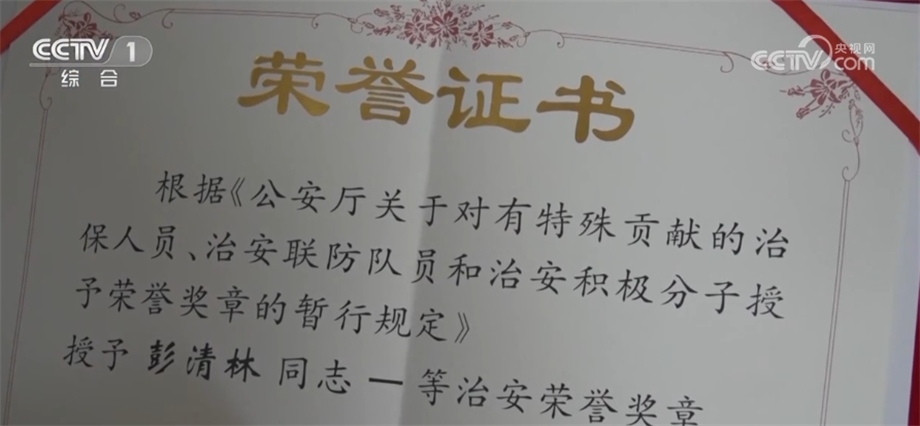 CCTV 1
综合
央视网
CCTV.com
荣誉证书
根据《公安厅关于对有特殊贡献的治
保人员、治安联防队员和治安积极分子授
予荣誉奖章的暂行规定》
授予 彭清林 同志 一 等治安荣誉奖章